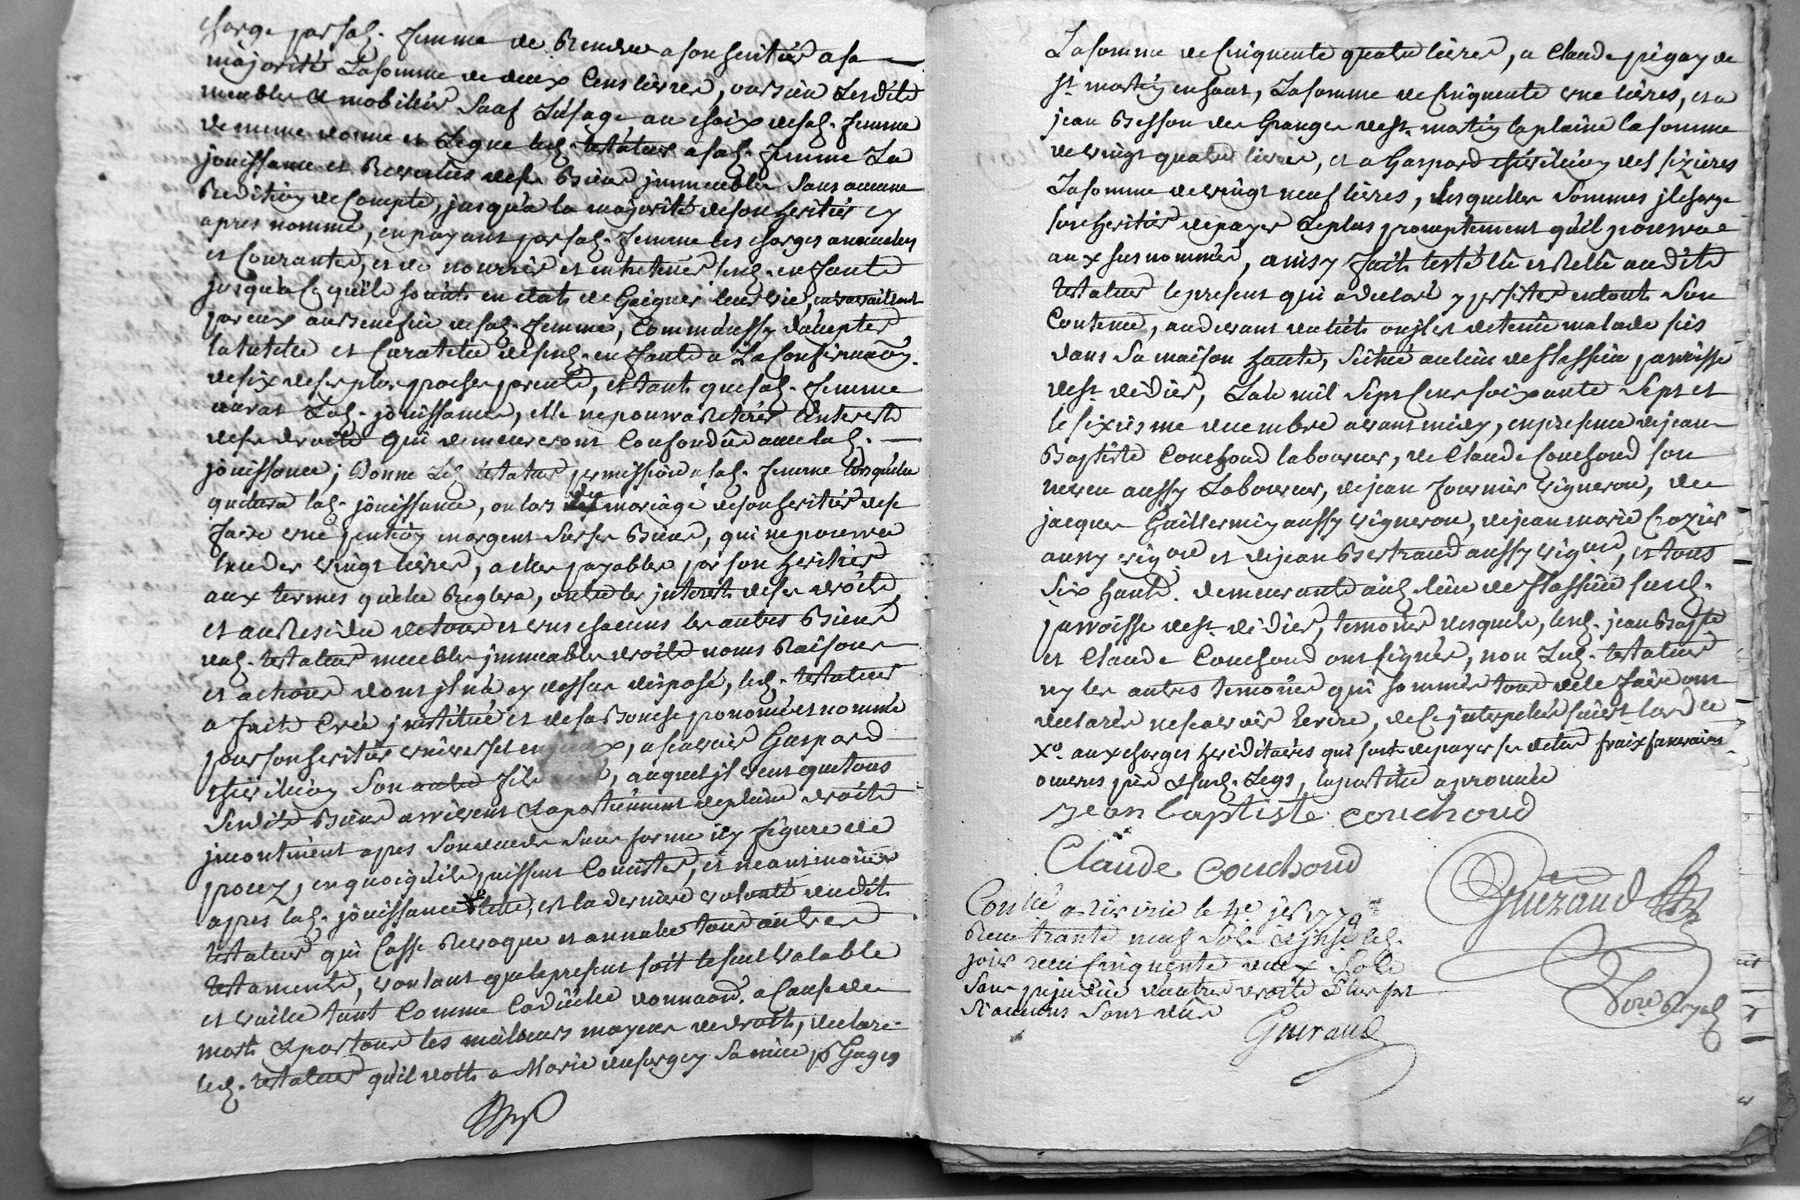 charge par sad. femme de Rendre a son heritier a sa
majorité La somme de deux Cens livres, ou bien Lesdits
meubles et mobiliers Sauf L'usage au choix de sad. femme
de meme donne et Legue led. testateur a sad. femme La
jouissance et Revenus de ses Biens jmmeubles Sans aucune
Reddition de Compte, jusqu'a la majorité de son heritier cy
apres nommé, en payant par sad. femme les charges annuelles
et Courantes, et de nourrir et entretenir lesd. enfants
jusqu'a ce qu'ils soints en etats de Gaigner leur vie, en travaillant
par eux au Benefice de sad. femme, Comm'aussy d'accepter
la tutelle et Curatelle de sesd. enfants a La Confirmaõn
de six de ses plus proches parents, et tant que sad. femme
aurat Lad. jouissance, elle ne pourra Retirer L'interest
de ses droits qui demeureront Confondus avec lad.
jouissance; Donne Led. testateur permission a sad. femme Lorsquelle
quittera lad. jouissance, ou lors du mariage de son heritier de se
faire une pention en argent sur ses Biens, qui ne pourra
exceder vingt livres, a elle payable par son heritier
aux termes qu'elle Reglera, outre les jnterests de ses droits,
et au Residu de tous et uns chacuns les autres Biens
dud. testateur meubles jmmeubles droits noms Raisons
et actions dont jl n'a cy dessus disposé, led. testateur
a fait Creé jnstitué et de sa Bouche prononcé et nommé
pour son heritier universel, a scavoir Gaspard
son autre fils, auquel jl veut que tous
Sesdits Biens arrivent et apartiennent de plein droits
jncontinent apres Son deces Sans forme ny figure de
procez, en quoi qu'ils puissent Consister, et neantmoins
apres lad. jouissance, et la derniere volonté dudit
testateur qui Casse Revoque et annulle tous autres
testaments, voulant que le present soit le seul valable
et vaille tant Comme Codicille donnaõn. a Cause de
mort et par tous les meilleurs moyens de droits, declare
led. testateur qu'il doits a Marie Sa niece pr Gages
La somme de Cinquente quatre livres, a Claude pigay de
St. martin en haut, La somme de Cinquente une livres, et a
jean Besson des Granges de St. martin la plaine la somme
de vingt quatre livres, et a Gaspard des fizieres
La somme de vingt neuf livres, Lesquelles Sommes jl charge
son heritier de payer Le plus promptement qu'il pourra
aux sus nommés, ainsy fait testé lû et Relû audit
testateur le present qui a declaré y persister en tout Son
Contenu, au devant du lict ou jl est detenû malade pris
dans Sa maison haute, Scituée au lieu de flassieu parroisse
de St. didier, L'ale mil Sept Cens soixante Sept et
le sixiesme decembre avant midy, en presence de jean
Baptiste Couchoud laboureur, de Claude Couchoud son
neveu aussy Laboureur, de jean fournier vigneron, de
jacques Guillermin aussy vigneron, de jean marie Crozier
aussy vigron et de jean Bertrand aussy vigron, et tous
Six hants. demeurants aud. lieu de flassieu susd.
parroisse de St. didier, temoins desquels, lesd. jean Bapte
et Claude Couchoud ont signés, non Led. testateur
ny les autres temoins qui sommés tous de le faire ont
declarés ne scavoir Ecrire, de ce jnterpellés suivt. L'ordce
Xo. aux charges hereditaires qui sont de payer ses dettes fraix funeraires
oeuvres pies et susd. Legs, la postille aprouvée
jean baptiste couchoud
Claude couchoud
Guéraud
Note Royal
Conllé a le 4e jer 1770
Reçu trante neuf Sols
Cinquente deux Sols
Sans prejudice d'autres droits plus fort
Si aucuns Sont dûs
Guéraud